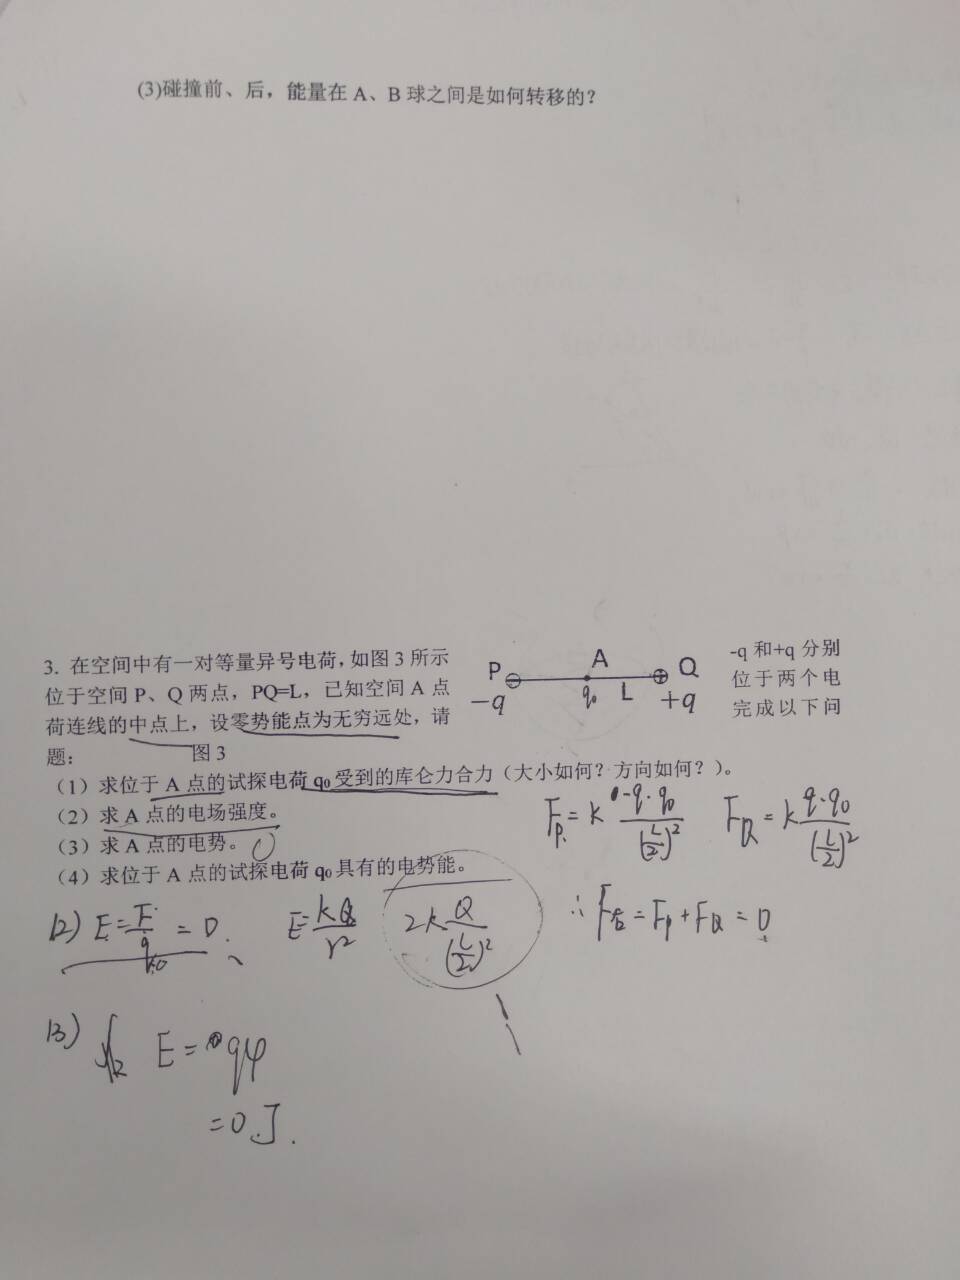 (3)碰撞前、后，能量在 A、B 球之间是如何转移的？
3. 在空间中有一对等量异号电荷，如图 3 所示
-q 和+q 分别
位于空间 P、Q 两点，PQ=L，已知空间 A 点
位于两个电
荷连线的中点上，设零势能点为无穷远处，请
完成以下问
题：
图 3
P A Q
-q q₀ L +q
（1）求位于 A 点的试探电荷 q₀ 受到的库仑力合力（大小如何？方向如何？）。
（2）求 A 点的电场强度。
（3）求 A 点的电势。
（4）求位于 A 点的试探电荷 q₀ 具有的电势能。
F_P = k -q·q₀/(L/2)² F_Q = k q·q₀/(L/2)²
∴ F合 = F_P + F_Q = 0
(2) E = F/q = 0. E = kQ/r² 2k Q/(L/2)²
(3) E = qφ
= 0 J.